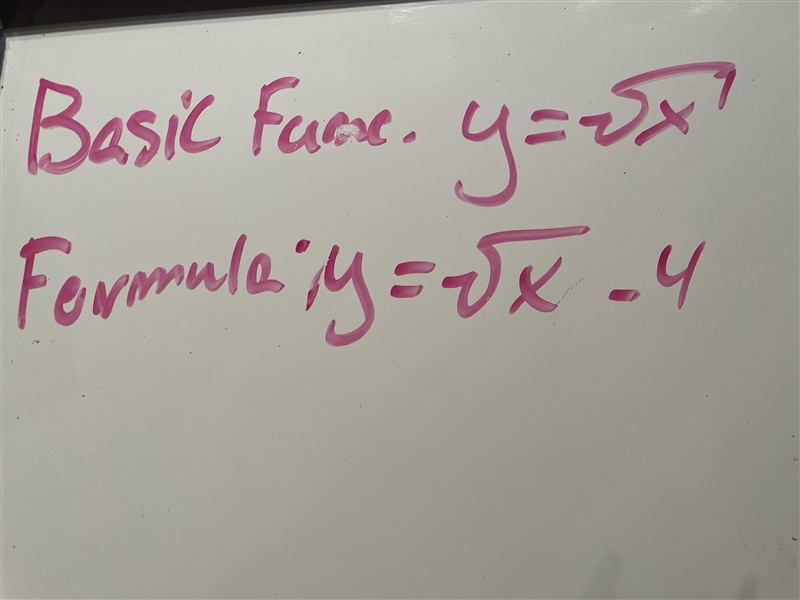 Basic Func. y = √x
Formula: y = √x - 4